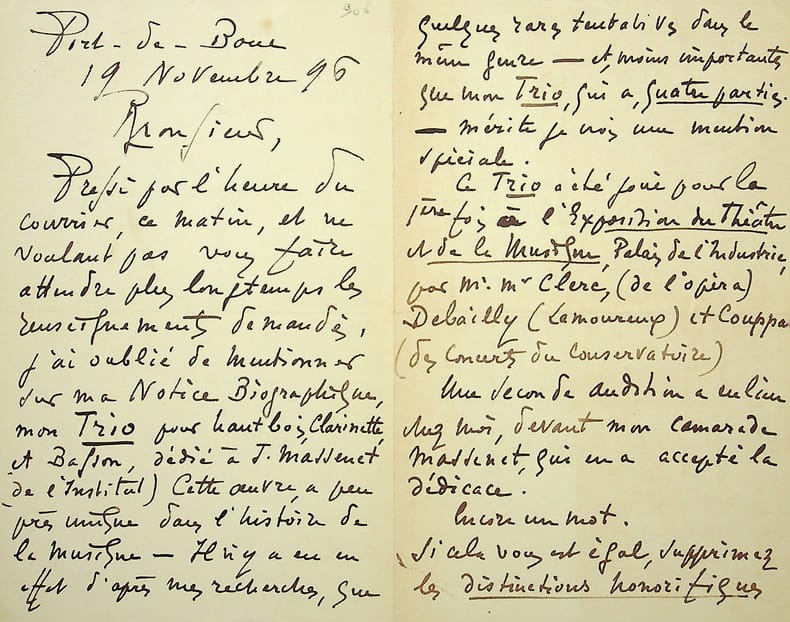 906
Port-de-Bouc
19 Novembre 96
Monsieur,
Pressé par l'heure du
courrier, ce matin, et ne
voulant pas vous faire
attendre plus longtemps les
renseignements demandés,
j'ai oublié de mentionner
sur ma Notice Biographique,
mon Trio pour hautbois, Clarinette,
et Basson, dédié à J. Massenet
(de l'Institut) Cette œuvre, a peu
près unique dans l'histoire de
la musique — Il n'y a eu en
effet d'après mes recherches, que
quelques rares tentatives dans le
même genre — et, moins importantes
que mon Trio, qui a, quatre parties.
— mérite je crois une mention
spéciale.
Ce Trio a été joué pour la
1ère fois à l'Exposition du Théâtre
et de la Musique, Palais de l'Industrie,
par Mr. Mr Clerc, (de l'opèra)
Debailly (Lamoureux) et Couppa
(des Concerts du Conservatoire)
Une seconde audition a eu lieu
chez moi, devant mon camarade
Massenet, qui en a accepté la
dédicace.
Encore un mot.
Si cela vous est égal, supprimez
les distinctions honorifiques